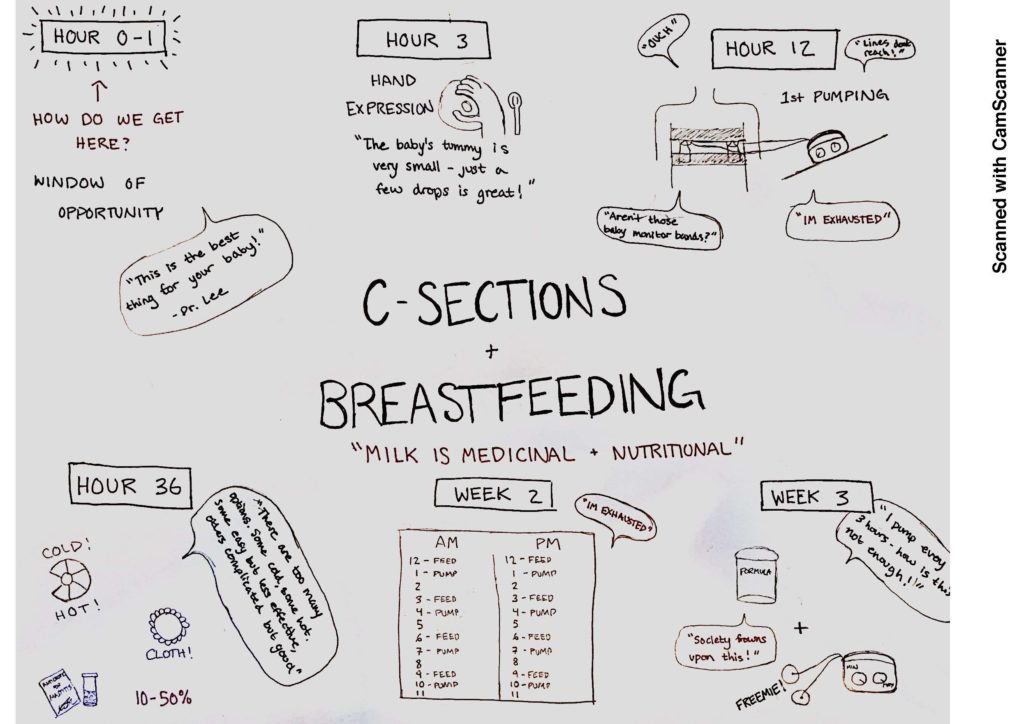 HOUR 0-1
HOW DO WE GET
HERE?
WINDOW OF
OPPORTUNITY
"This is the best
thing for your baby!"
-Dr. Lee
HOUR 3
HAND
EXPRESSION
"The baby's tummy is
very small - just a
few drops is great!"
"OUCH"
HOUR 12
"Lines don't
reach!"
1st PUMPING
"Aren't those
baby monitor bands?"
"IM EXHAUSTED"
C-SECTIONS
+
BREASTFEEDING
"MILK IS MEDICINAL + NUTRITIONAL"
HOUR 36
"There are too many
options. Some cold, some hot.
some easy but less effective,
others complicated but good"
COLD!
HOT!
CLOTH!
10-50%
WEEK 2
"IM EXHAUSTED"
AM
12 - FEED
1 - PUMP
2
3 - FEED
4 - PUMP
5
6 - FEED
7 - PUMP
8
9 - FEED
10 - PUMP
11
PM
12 - FEED
1 - PUMP
2
3 - FEED
4 - PUMP
5
6 - FEED
7 - PUMP
8
9 - FEED
10 - PUMP
11
WEEK 3
"I pump every
3 hours - how is this
not enough!"
FORMULA
"Society frowns
upon this!"
+
FREEMIE!
MIN
Scanned with CamScanner